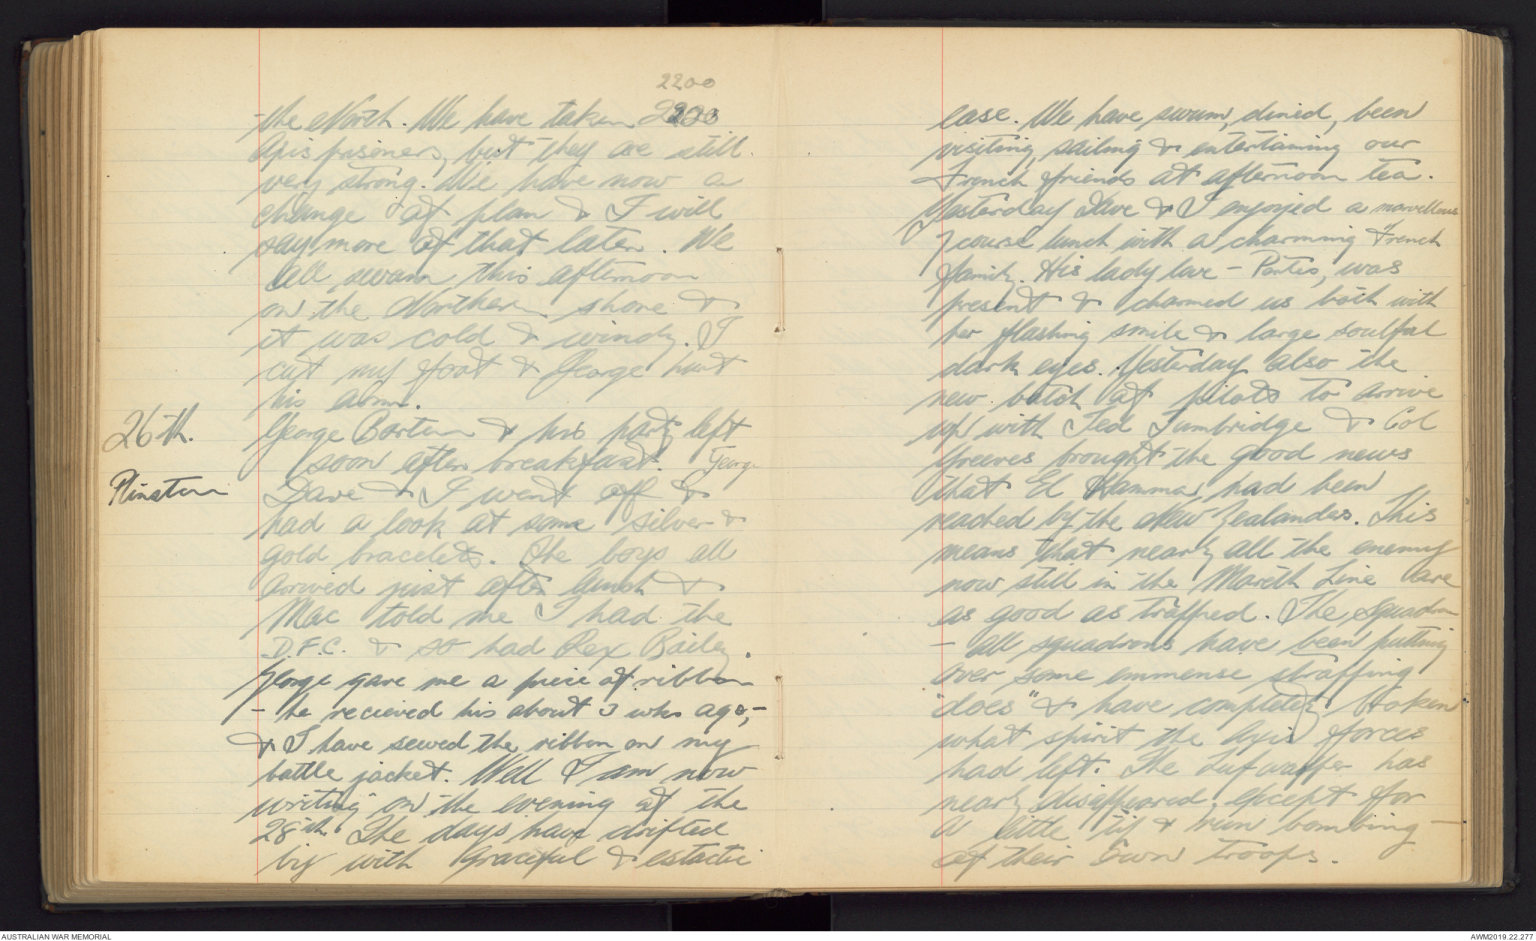 2200
the North. We have taken 2200
Axis prisoners, but they are still
very strong. We have now a
change of plan & I will
say more of that later. We
all swam this afternoon
on the Northern shore &
it was cold & windy. I
cut my foot & George hurt
his arm.
26th.
George Barton & his party left
soon after breakfast. George
Dave & I went off &
had a look at some silver &
gold bracelets. The boys all
arrived just after lunch &
Mac told me I had the
D.F.C. & so had Rex Bailey.
George gave me a piece of ribbon
- he recieved his about 3 wks ago,-
& I have sewed the ribbon on my
battle jacket. Well I am now
writing on the evening of the
28th. The days have drifted
by with graceful & estactic
ease. We have swum, dined, been
visiting, sailing & entertaining our
French friends at afternoon tea.
Yesterday Dave & I enjoyed a marvellous
7 course lunch with a charming French
family. His lady love - was
present & charmed us both with
her flashing smile & large soulful
dark eyes. Yesterday also the
new batch of pilots to arrive
up with Ted Tunbridge & Col
Greeves brought the good news
that El Hamma, had been
reached by the New Zealanders. This
means that nearly all the enemy
now still in the Mareth Line are
as good as trapped. The, squadron
- all squadrons have been putting
over some immense straffing
"does" & have completely broken
what spirit the Axis forces
had left. The Lufwaffer has
nearly disappeared, except for
a little tip & run bombing -
of their own troops.
AUSTRALIAN WAR MEMORIAL
AWM2019.22.277